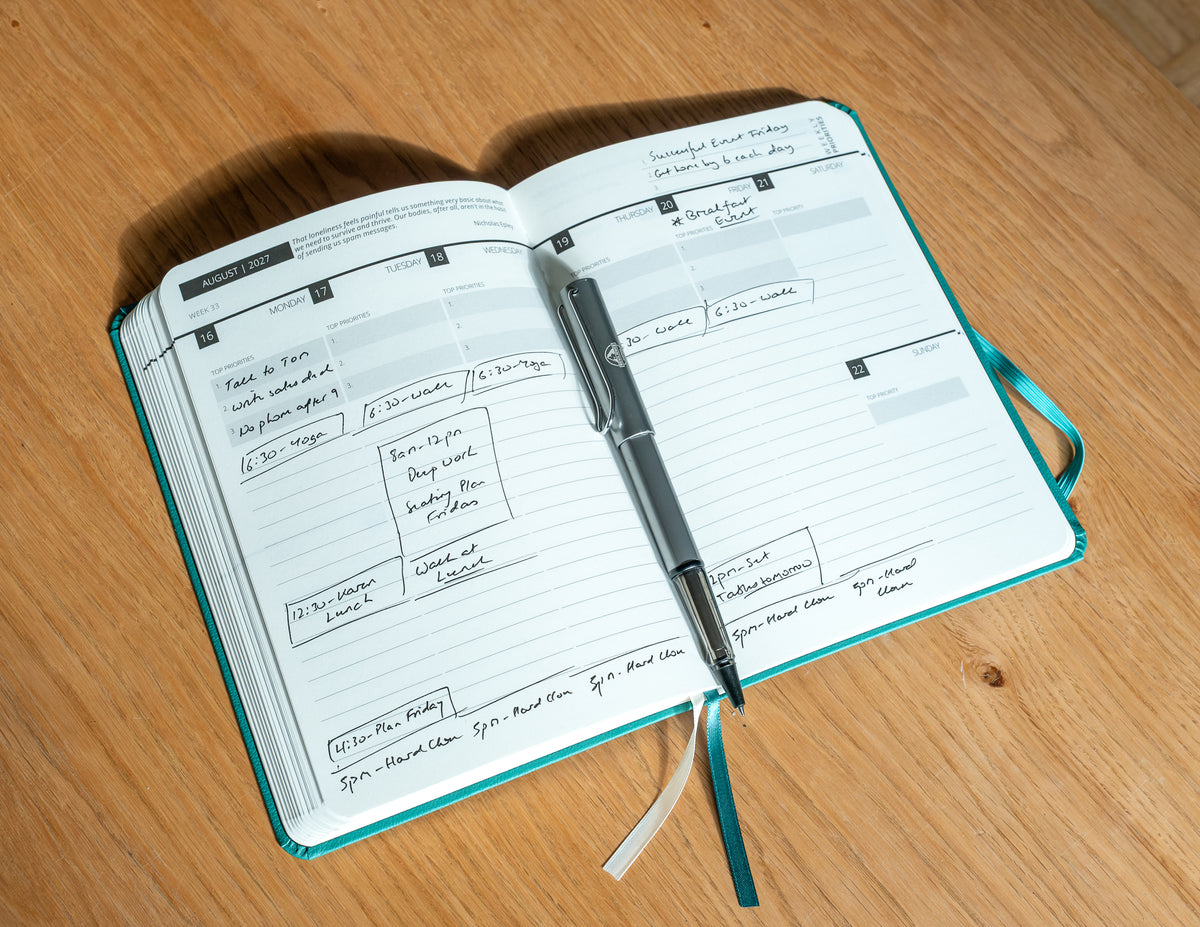 That loneliness feels painful tells us something very basic about what
we need to survive and thrive. Our bodies, after all, aren't in the habit
of sending us spam messages.
Nicholas Epley
AUGUST | 2027
WEEK 33
16 MONDAY
TOP PRIORITIES
1. Talk to Tom
2. Write
3. No phone after 9
6:30-Yoga
12:30-Karen
Lunch
4:30-Plan Friday
5pm-Hard
17 TUESDAY
TOP PRIORITIES
1.
2.
3.
6:30-Walk
8am-12pm
Deep work
Seating Plan
Fridas
Walk at
Lunch
5pm-Hard
18 WEDNESDAY
TOP PRIORITIES
1.
2.
3.
6:30-Yoga
5pm-Hard
WEEKLY
PRIORITIES
1. Successful Event Friday
2. Get home by 6 each day
3.
19 THURSDAY
TOP PRIORITIES
30-Walk
2pm-Set
Tables tomorrow
5pm-Hard
20 FRIDAY
* Breakfast
Event
TOP PRIORITIES
1.
2.
3.
6:30-Walk
5pm-Hard
21 SATURDAY
TOP PRIORITY
22 SUNDAY
TOP PRIORITY